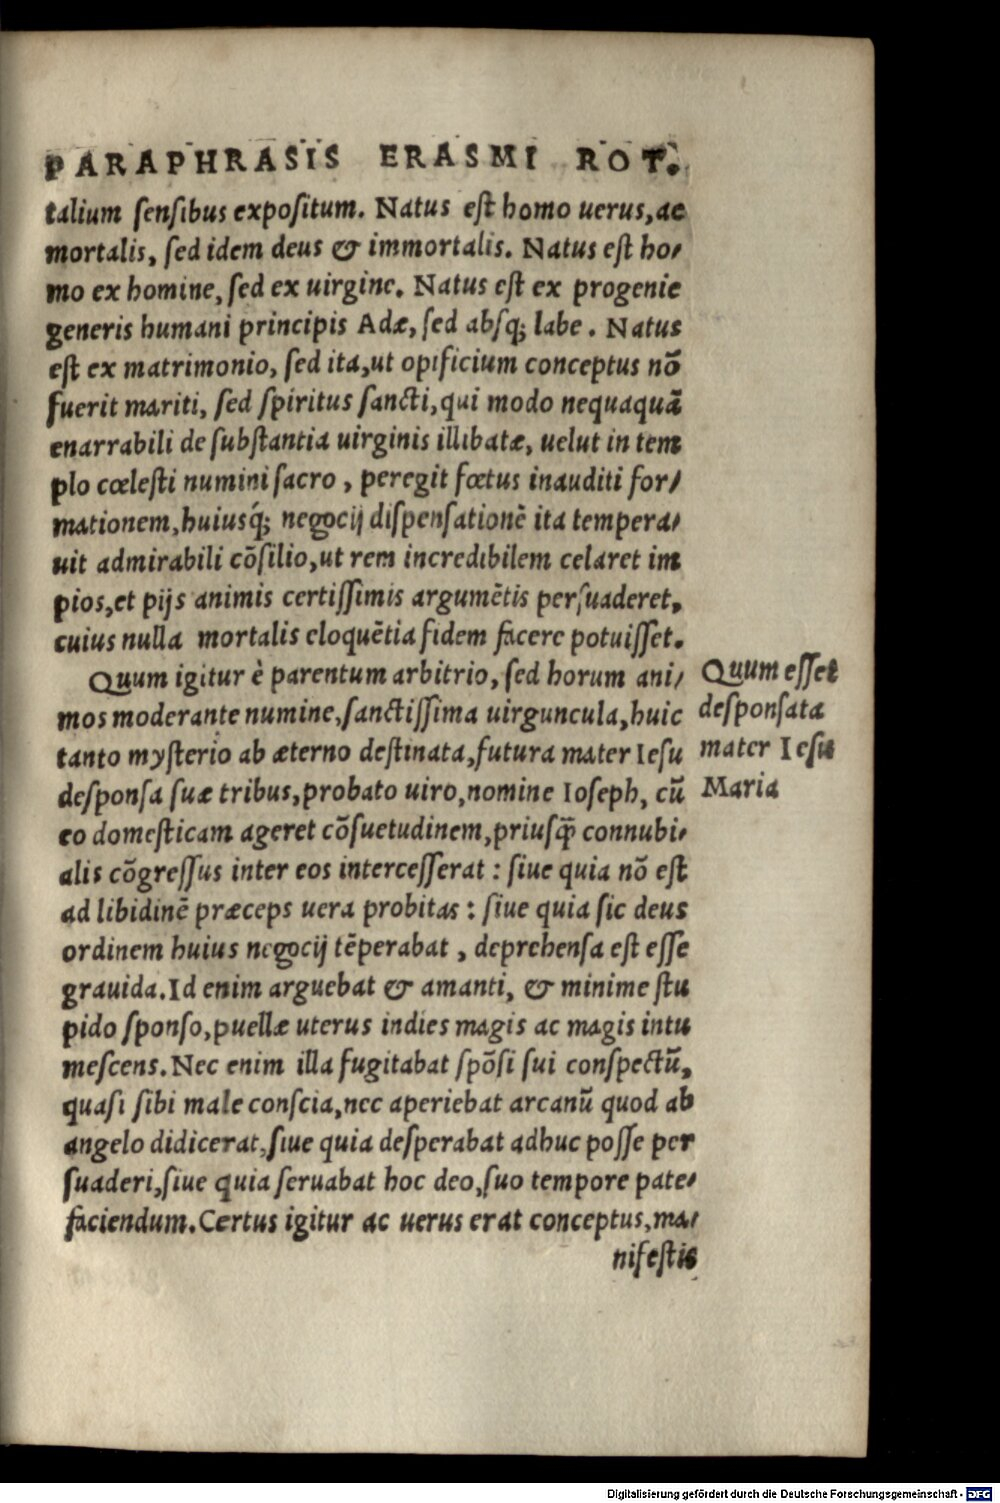 PARAPHRASIS ERASMI ROT.
talium ſenſibus expoſitum. Natus eſt homo uerus, ac
mortalis, ſed idem deus & immortalis. Natus eſt ho-
mo ex homine, ſed ex uirgine. Natus eſt ex progenie
generis humani principis Adæ, ſed abſq; labe. Natus
eſt ex matrimonio, ſed ita, ut opificium conceptus nō
fuerit mariti, ſed ſpiritus ſancti, qui modo nequaquā
enarrabili de ſubſtantia uirginis illibatæ, uelut in tem
plo cœleſti numini ſacro, peregit fœtus inauditi for-
mationem, huiusq́; negocij diſpenſationē ita tempera-
uit admirabili cōſilio, ut rem incredibilem celaret im
pios, et pijs animis certiſſimis argumētis perſuaderet,
cuius nulla mortalis eloquētia fidem facere potuiſſet.
Quum igitur è parentum arbitrio, ſed horum ani-
mos moderante numine, ſanctiſſima uirguncula, huic
tanto myſterio ab æterno deſtinata, futura mater Ieſu
deſponſa ſuæ tribus, probato uiro, nomine Ioſeph, cū
eo domeſticam ageret cōſuetudinem, priusq̄ connubi-
alis cōgreſſus inter eos interceſſerat : ſiue quia nō eſt
ad libidinē præceps uera probitas : ſiue quia ſic deus
ordinem huius negocij tēperabat, deprehenſa eſt eſſe
grauida. Id enim arguebat & amanti, & minime ſtu
pido ſponſo, puellæ uterus indies magis ac magis intu
meſcens. Nec enim illa fugitabat ſpōſi ſui conſpectū,
quaſi ſibi male conſcia, nec aperiebat arcanū quod ab
angelo didicerat, ſiue quia deſperabat adhuc poſſe per
ſuaderi, ſiue quia ſeruabat hoc deo, ſuo tempore pate-
faciendum. Certus igitur ac uerus erat conceptus, ma-
nifeſtis
Quum eſſet
deſponſata
mater Ieſu
Maria
Digitalisierung gefördert durch die Deutsche Forschungsgemeinschaft - DFG